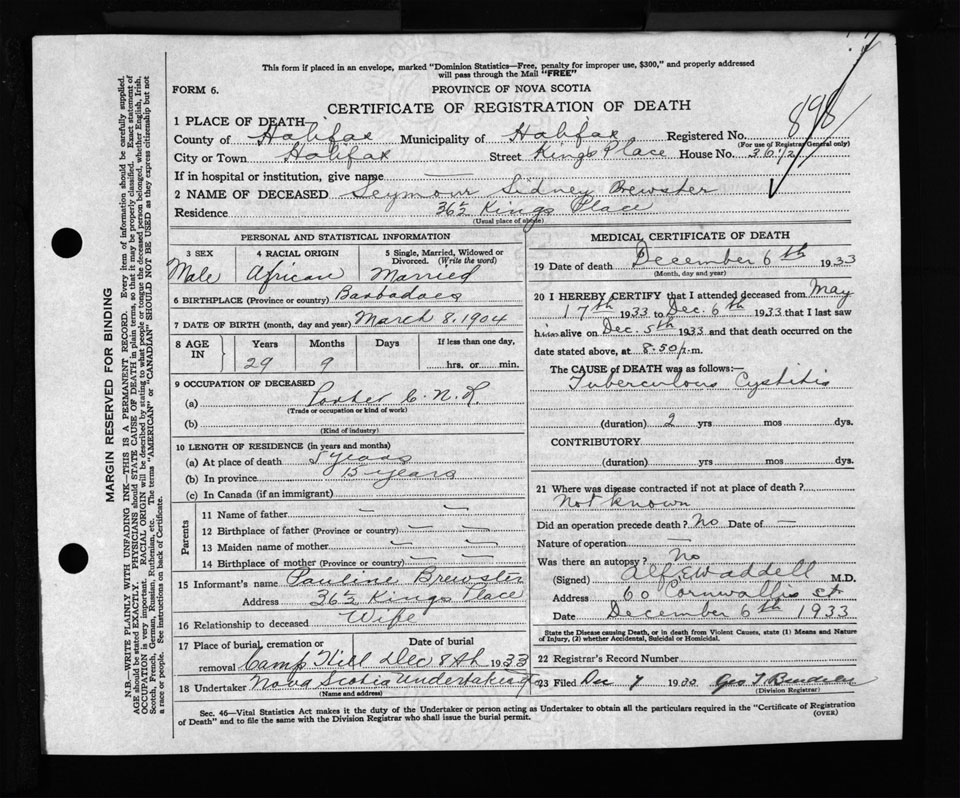 This form if placed in an envelope, marked "Dominion Statistics—Free, penalty for improper use, $300," and properly addressed
will pass through the Mail "FREE"
FORM 6.
PROVINCE OF NOVA SCOTIA
CERTIFICATE OF REGISTRATION OF DEATH
898
1 PLACE OF DEATH
County of Halifax Municipality of Halifax Registered No.
(For use of Registrar General only)
City or Town Halifax Street Kings Place House No. 36 1/2
If in hospital or institution, give name —
2 NAME OF DECEASED Seymour Sidney Brewster
Residence 36½ Kings Place
(Usual place of abode)
PERSONAL AND STATISTICAL INFORMATION
3 SEX 4 RACIAL ORIGIN 5 Single, Married, Widowed or Divorced. (Write the word)
Male African Married
6 BIRTHPLACE (Province or country) Barbadoes
7 DATE OF BIRTH (month, day and year) March 8, 1904
8 AGE IN Years Months Days If less than one day,
29 9 hrs. or min.
9 OCCUPATION OF DECEASED
(a) Porter C.N.R.
(Trade or occupation or kind of work)
(b)
(Kind of industry)
10 LENGTH OF RESIDENCE (in years and months)
(a) At place of death 5 years
(b) In province 15 years
(c) In Canada (if an immigrant)
Parents
11 Name of father — —
12 Birthplace of father (Province or country) — —
13 Maiden name of mother — —
14 Birthplace of mother (Province or country) — —
15 Informant's name Pauline Brewster
Address 36½ Kings Place
16 Relationship to deceased Wife
17 Place of burial, cremation or removal Date of burial
Camp Hill Dec 8th 1933
18 Undertaker Nova Scotia Undertaking Co
(Name and address)
MEDICAL CERTIFICATE OF DEATH
19 Date of death December 6th 1933
(Month, day and year)
20 I HEREBY CERTIFY that I attended deceased from May
17th 1933 to Dec. 6th 1933 that I last saw
him alive on Dec. 5th 1933 and that death occurred on the
date stated above, at 8.50 p.m.
The CAUSE OF DEATH was as follows:—
Tuberculous Cystitis
(duration) 2 yrs mos dys.
CONTRIBUTORY
(duration) yrs mos dys.
21 Where was disease contracted if not at place of death?
Not known
Did an operation precede death? No Date of —
Nature of operation —
Was there an autopsy? No
(Signed) Alf E Waddell M.D.
Address 60 Cornwallis St
Date December 6th 1933
State the Disease causing Death, or in death from Violent Causes, state (1) Means and Nature of Injury, (2) whether Accidental, Suicidal or Homicidal.
22 Registrar's Record Number
23 Filed Dec 7 19 Geo T
(Division Registrar)
Sec. 46—Vital Statistics Act makes it the duty of the Undertaker or person acting as Undertaker to obtain all the particulars required in the "Certificate of Registration
of Death" and to file the same with the Division Registrar who shall issue the burial permit.
(OVER)
MARGIN RESERVED FOR BINDING
N.B.—WRITE PLAINLY WITH UNFADING INK—THIS IS A PERMANENT RECORD. Every item of information should be carefully supplied.
AGE should be stated EXACTLY. PHYSICIANS should STATE CAUSE OF DEATH in plain terms, so that it may be properly classified. Exact statement of
OCCUPATION is very important. RACIAL ORIGIN will be described by stating to what people or tongue the deceased person belonged, whether English, Irish,
Scotch, French, German, Russian, Ruthenian, etc. The terms "AMERICAN" or "CANADIAN" SHOULD NOT BE USED as they express citizenship but not
a race or people. See instructions on back of Certificate.